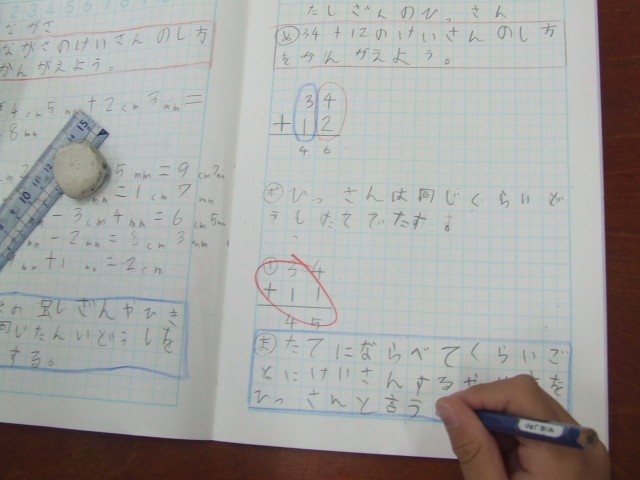 ながさ
ながさのけいさんのしか
かんがえよう。
4cm5mm+2cm3mm=
8mm
5mm=9cm
mm=1cm7mm
-3cm4mm=6cm5mm
-2mm=8cm3mm
+1mm=2cm
たしざんやひき
同じたんいどうしを
する。
たしざんのひっさん
め34+12のけいさんのしか
をかんがえよう。
34
+12
46
ひっさんは同じくらいど
うしたてでたす。
34
+11
45
ま たてにならべてくらいご
とにけいさんする
ひっさんと言う